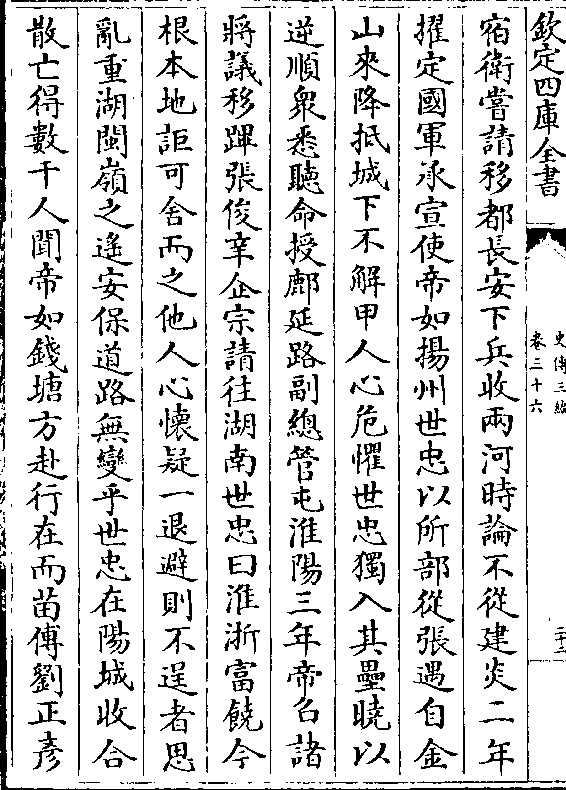 欽定四庫全書
史傳三編
卷三十六
宿衛嘗請移都長安下兵收兩河時論不從建炎二年
擢定國軍承宣使帝如揚州世忠以所部從張遇自金
山來降抵城下不解甲人心危懼世忠獨入其壘曉以
逆順衆悉聽命授鄜延路副總管屯淮陽三年帝召諸
將議移蹕張俊辛企宗請往湖南世忠曰淮浙富饒今
根本地詎可舍而之他人心懷疑一退避則不逞者思
亂重湖閩嶺之遙安保道路無變乎世忠在陽城收合
散亡得數千人聞帝如錢塘方赴行在而苗傅劉正彥